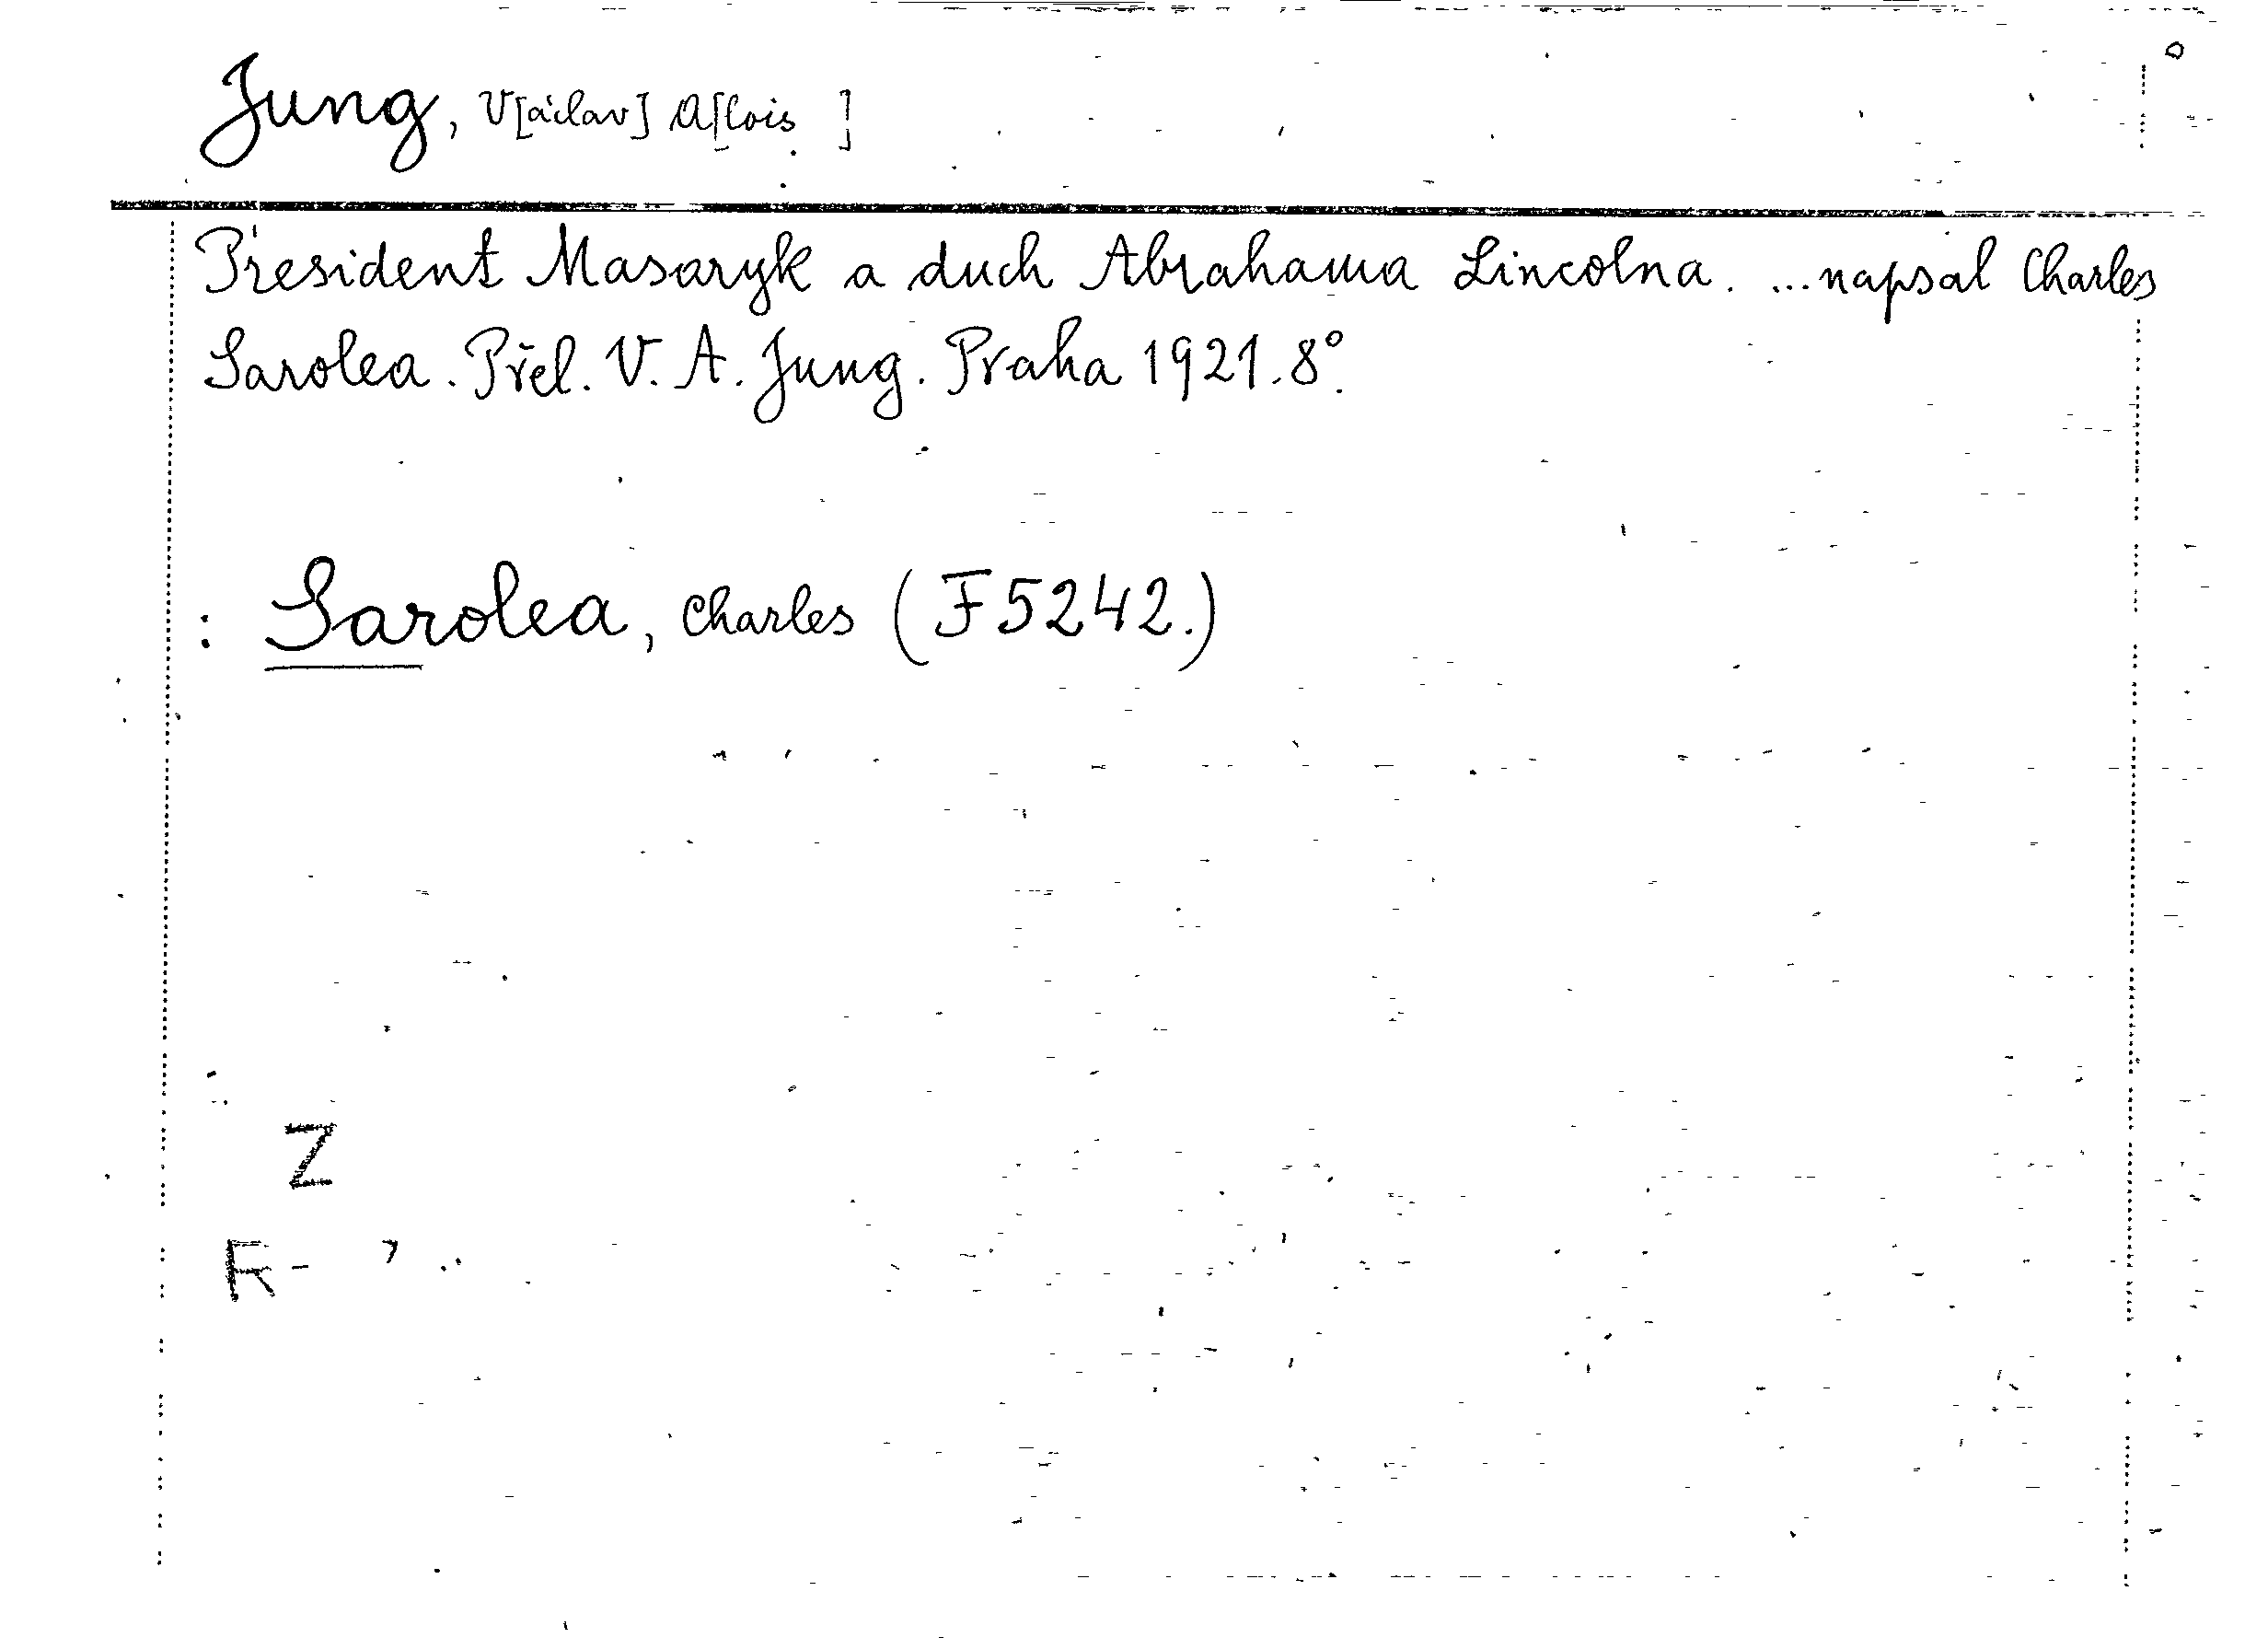 Jung, V[áclav] A[lois ]
President Masaryk a duch Abrahama Lincolna. ...napsal Charles
Sarolea. Přel. V. A. Jung. Praha 1921. 8°.
: Sarolea, Charles (F 5242.)
Z